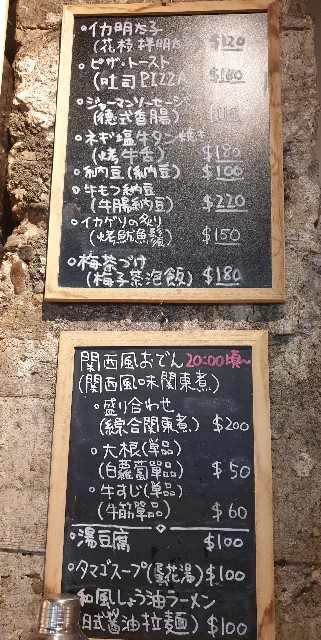 イカ明太子
(花枝拌明太) $120
ピザ・トースト
(吐司PIZZA $180
ジャーマンソーセージ
(德式香腸)
ネギ塩牛タン焼き
(烤牛舌) $180
納豆(納豆) $100
牛もつ納豆
(牛腸納豆) $220
イカゲソの炙り
(烤魷魚鬚) $150
梅茶づけ
(梅子茶泡飯) $180
関西風おでん 20:00頃~
(関西風味関東煮)
盛り合わせ
(綜合関東煮) $200
大根(単品)
(白蘿蔔單品) $50
牛すじ(単品)
(牛筋單品) $60
湯豆腐 $100
タマゴスープ(蛋花湯) $100
和風しょう油ラーメン
日式醬油拉麵 $100